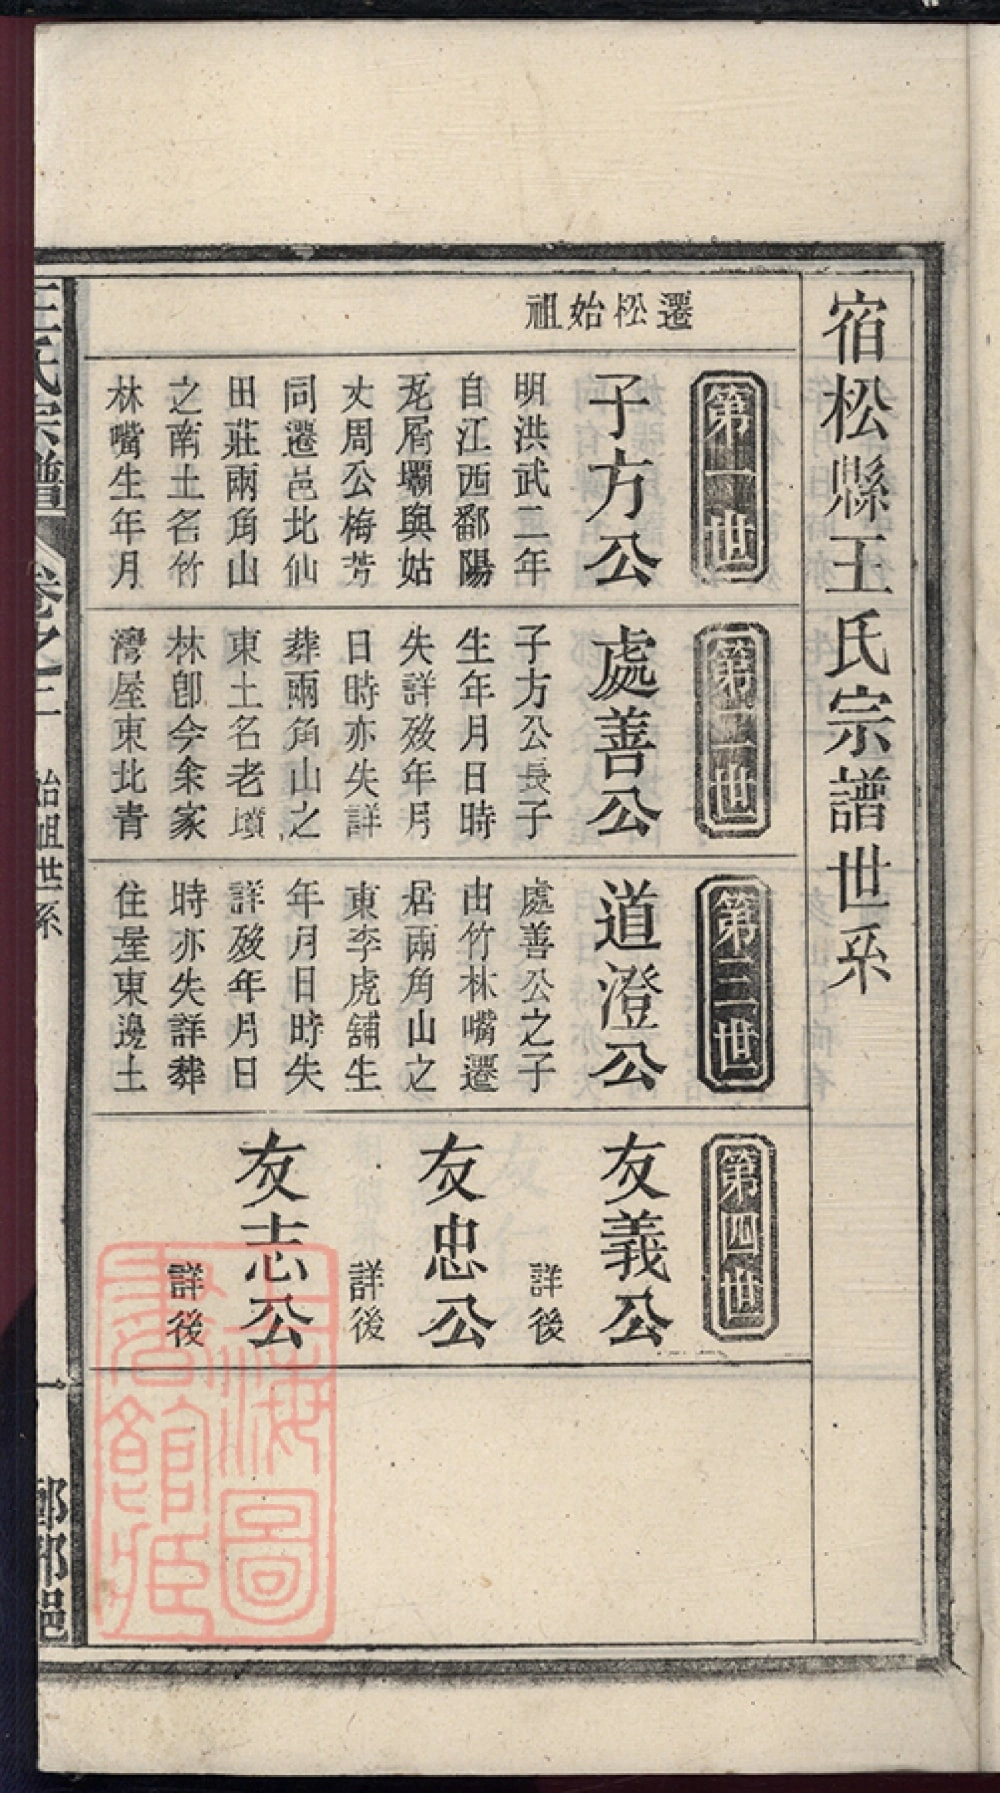 宿松縣王氏宗譜世系
遷松始祖
第一世
子方公
明洪武二年
自江西鄱陽
瓦屑壩與姑
丈周公梅芳
同遷邑北仙
田莊兩角山
之南土名竹
林嘴生年月
第二世
處善公
子方公長子
生年月日時
失詳歿年月
日時亦失詳
葬兩角山之
東土名老墳
林卽今余家
灣屋東北青
第三世
道澄公
處善公之子
由竹林嘴遷
居兩角山之
東李虎舖生
年月日時失
詳歿年月日
時亦失詳葬
住屋東邊土
第四世
友義公
詳後
友忠公
詳後
友志公
詳後
王氏宗譜
卷之二
始祖世系
一
上海圖
書館藏